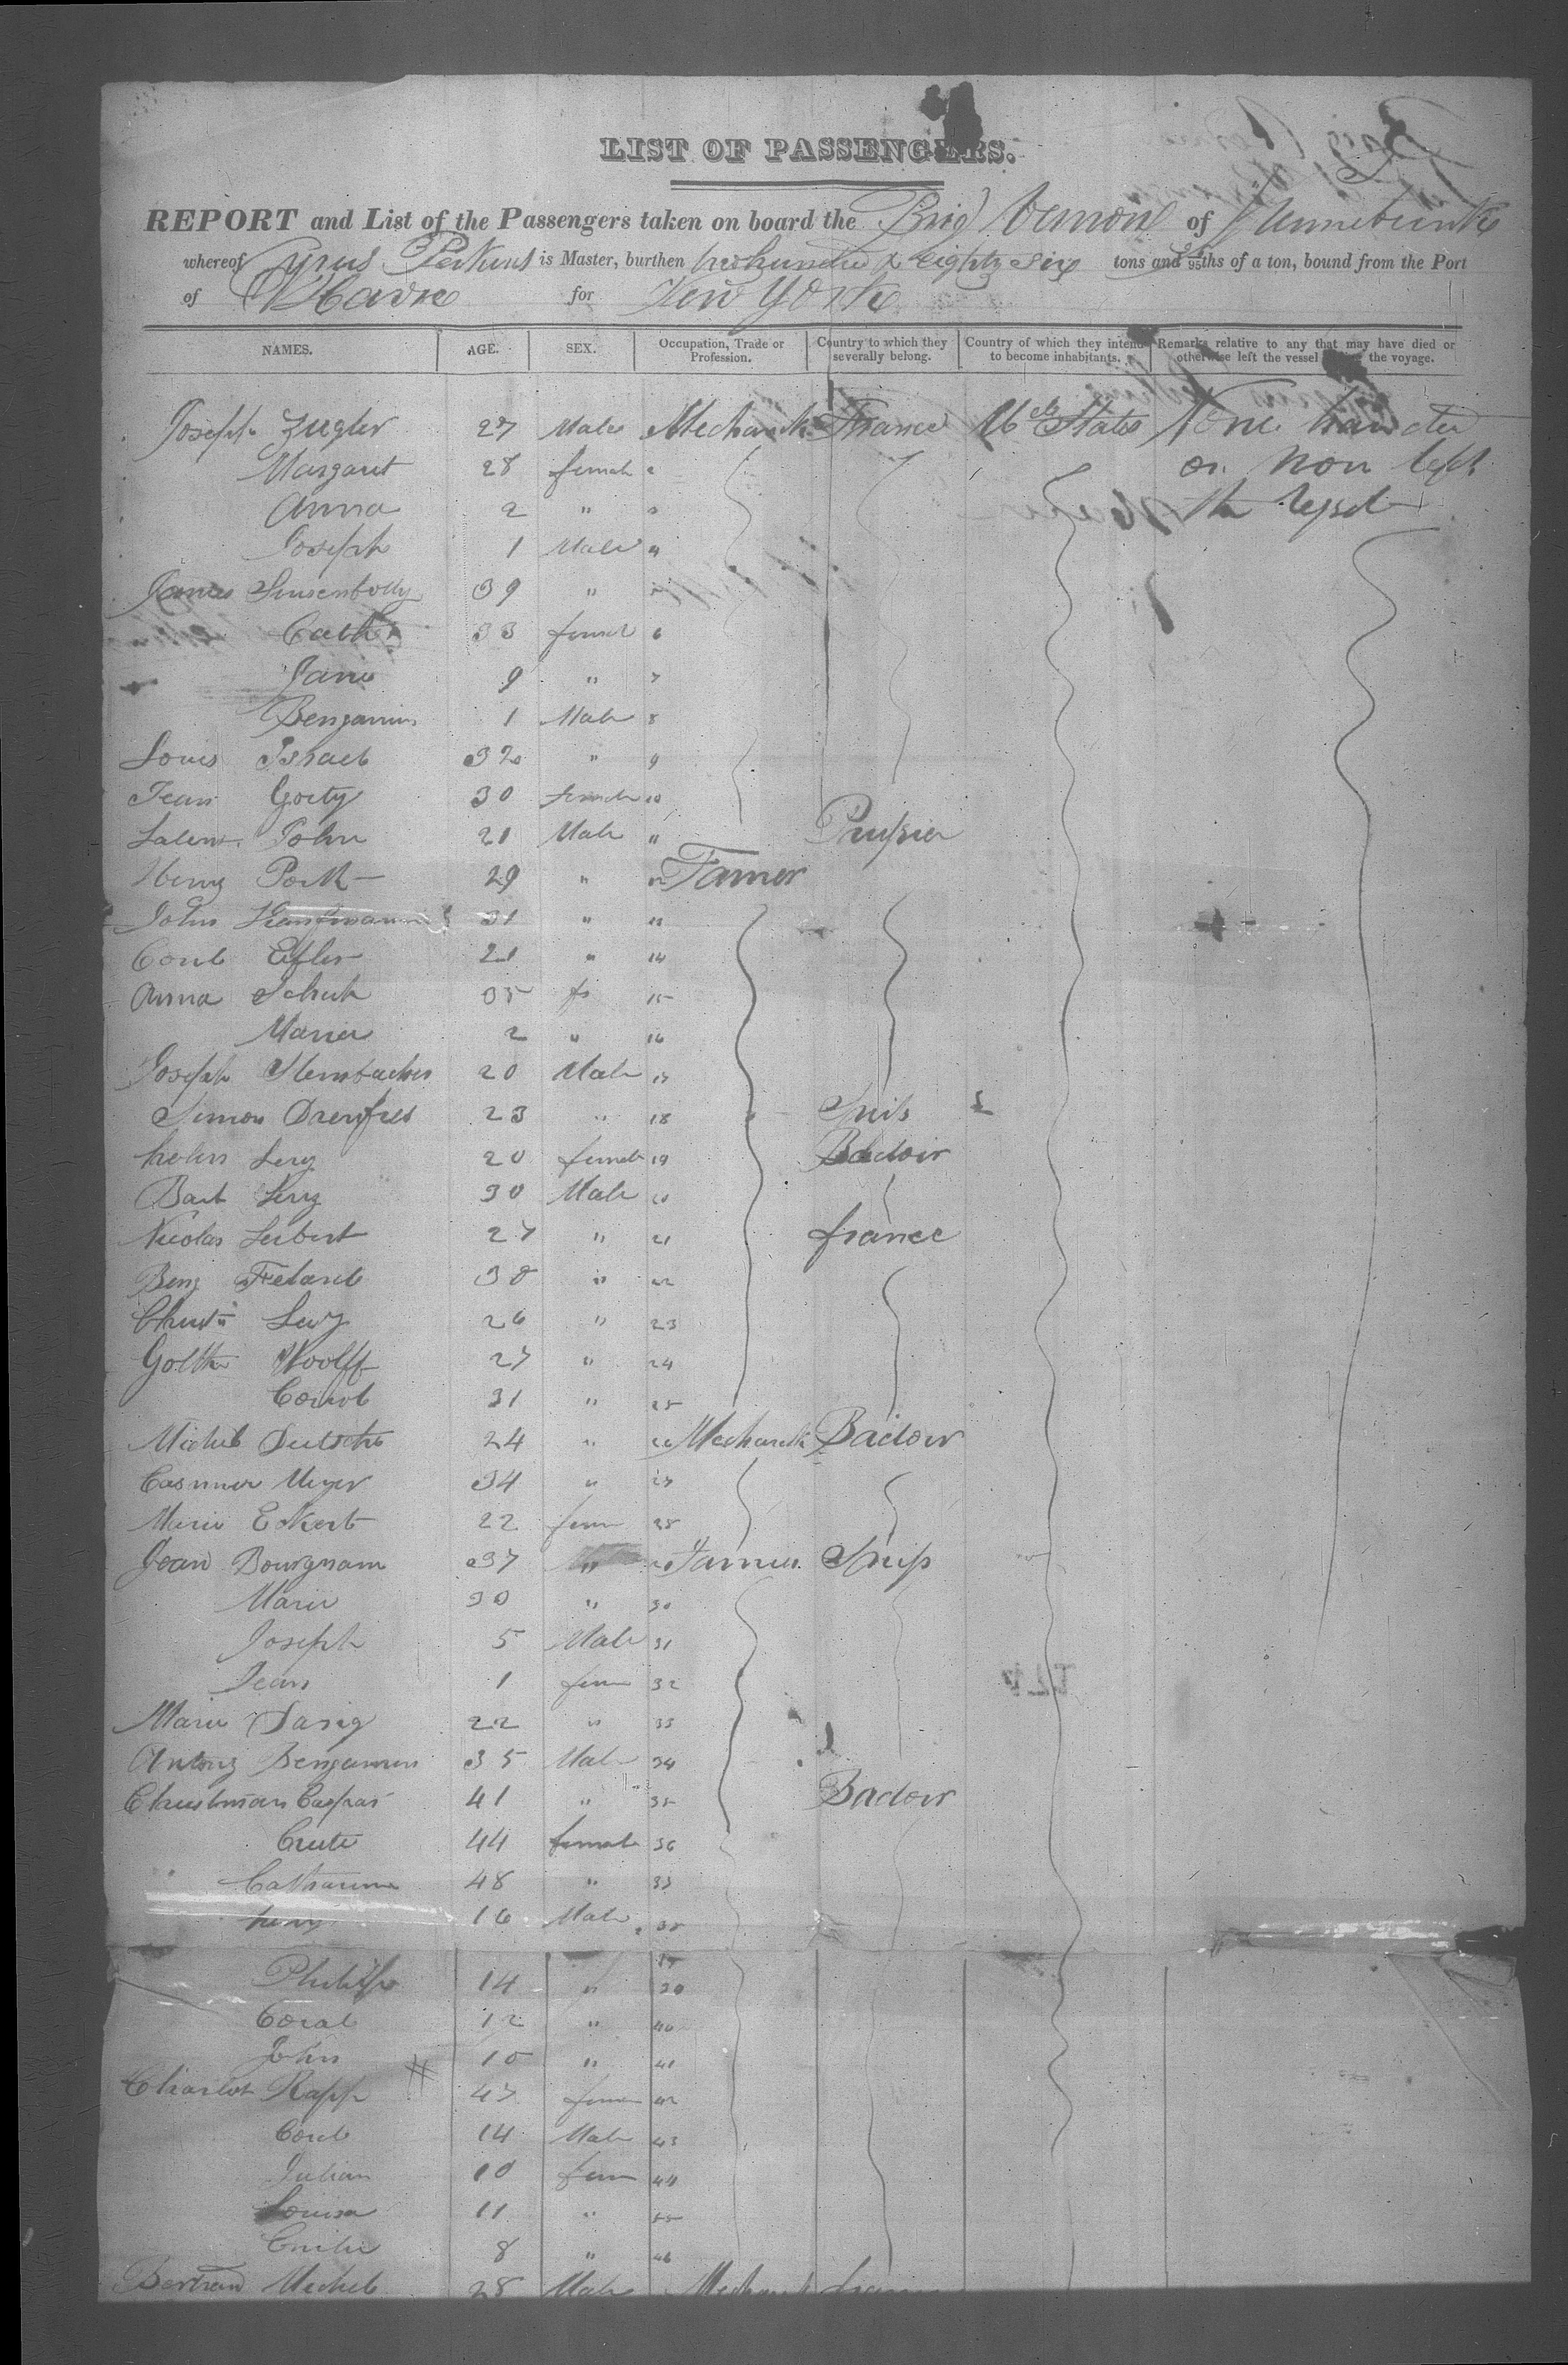 LIST OF PASSENGERS.
REPORT and List of the Passengers taken on board the Brig Vernon of Kennebunk
whereof Cyrus Perkins is Master, burthen two hundred & eighty six tons and 95ths of a ton, bound from the Port
of Havre for New York
NAMES. AGE. SEX. Occupation, Trade or Profession. Country to which they severally belong. Country of which they intend to become inhabitants. Remarks relative to any that may have died or otherwise left the vessel the voyage.
Joseph Zugler 27 Male Mechanick France Ud States None have died
Margaret 28 female 2 or non left
Anna 2 " 3 the Vessel
Joseph 1 Male 4
James 39 " 5
Cath 33 femal 6
Jane 9 " 7
Benjamin 1 Male 8
Louis Israel 32 " 9
Jean Goety 30 female 10
Salem John 21 Male 11 Prussia
Henry Pork 29 " 12 Farmer
John Kaufmann 31 " 13
Conl Efler 21 " 14
Anna Schuh 35 fe 15
Maria 2 " 16
Joseph Stembacher 20 Male 17
Simon 23 " 18 Swis
Levy 20 female 19 Badoir
Bart Levy 30 Male 20
Nicolas Leibert 27 " 21 france
Benj 38 " 22
Levy 26 " 23
Woolff 27 " 24
31 " 25
Michel 24 " 26 Mechanick Badoir
Casimer Meyer 34 " 27
Marie Eckert 22 fem 28
Jean Bourgnam 37 " 29 Farmer
Marie 30 " 30
Joseph 5 Male 31
Jean 1 fem 32
Marie 22 " 33
Antony Benjamin 35 Male 34
Christman Caspar 41 " 35 Badoir
44 female 36
Catharine 48 " 37
henry 16 Male 38
Philip 14 "
Coral 12 " 40
John 10 " 41
Charlot Rapp 47 fem 42
14 Male 43
Julian 10 fem 44
Louisa 11 " 45
Emilie 8 " 46
Bertrand Michel 28 Male